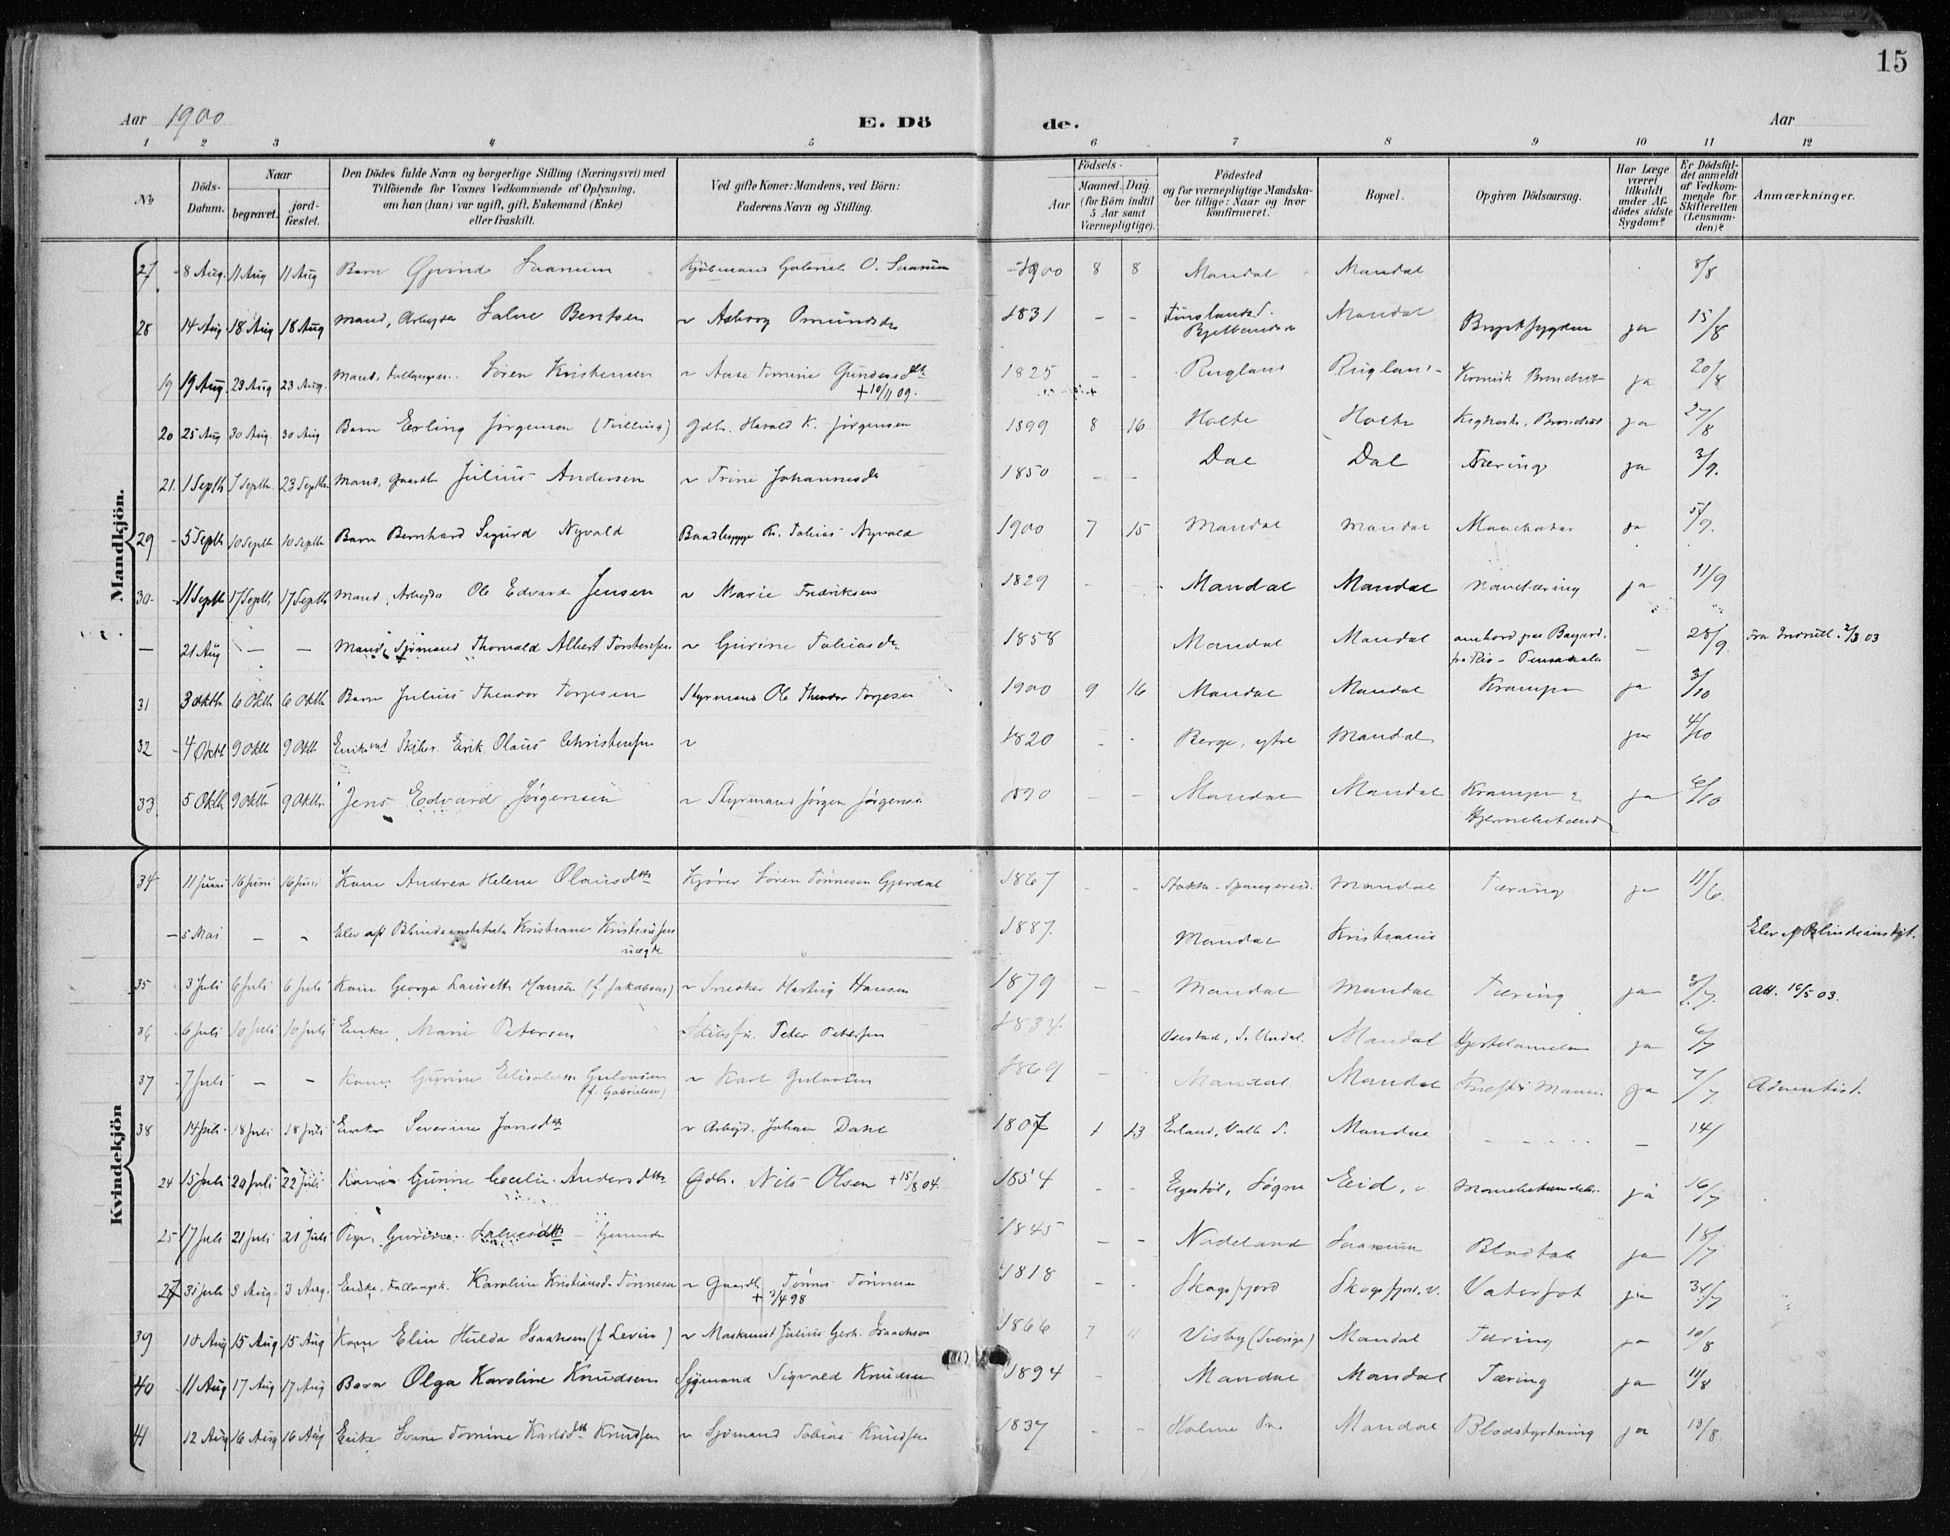 15
Aar 1900 E. Dö de. Aar
1 2 3 4 5 6 7 8 9 10 11 12
№
Döds-Datum.
Naar begravet. jord-fæstet.
Den Dödes fulde Navn og borgerlige Stilling (Næringsvei) med Tilföiende for Voxnes Vedkommende af Oplysning, om han (hun) var ugift, gift, Enkemand (Enke) eller fraskilt.
Ved gifte Koner: Mandens, ved Börn: Faderens Navn og Stilling.
Födsels-
Aar Maaned. Dag (for Börn indtil 5 Aar samt Værnepligtige).
Födested og for værnepligtige Mandskaber tillige: Naar og hvor konfirmeret.
Bopæl.
Opgiven Dödsaarsag.
Har Læge været tilkaldt under Afdödes sidste Sygdom?
Er Dödsfaldet anmeldt af Vedkommende for Skifteretten (Lensmanden)?
Anmærkninger.
Mandkjön.
27 8 Aug. 11 Aug 11 Aug Barn Øivind Saanum Gabriel O. Saanum 1900 8 8 Mandal Mandal 8/8
28 14 Aug 18 Aug 18 Aug Mand, Arbejder Salve Bentsen ~ Asborg Omundsdr 1831 - - Finsland S. Mandal Brystsygdom ja 15/8
19 19 Aug. 23 Aug 23 Aug. Mand, Søren Kristensen ~ Aase Tomine Gundersdtr 1825 - - Rugland Rugland Kronisk Bronchit ja 20/8
+ 10/11 09.
20 25 Aug 30 Aug 30 Aug Barn Erling Jørgensen (Tvilling) Gdbr. Harald K. Jørgensen 1899 8 16 Holte Holte Kighoste, Bronchit ja 27/8
21. 1 Septb 7 Septb. 23 Septbr Mand, Gaardb Julius Andersen ~ Trine Johannesdr 1850 - - Dal Dal Tæring ja 3/9.
29 5 Septb 10 Septb 10 Septb Barn Bernhard Sigurd Nyvold Baadbygger Tobias Nyvold 1900 7 15 Mandal Mandal ja 5/9.
30. 11 Septb 17 Septb 17 Septb Mand, Arbejder Ole Edvard Jensen ~ Marie Fredriksen 1829 - - Mandal Mandal ja 11/9
— 21 Aug — — Mand, Sjømand Thorvald Albert Torstensen ~ Gurine Tobiasdr 1858 Mandal Mandal ombord paa — 28/9 2/3 03
fra Rio - Pensacola
31 3 Oktb 6 Oktb 6 Oktb Barn Julius Theodor Torjesen Styrmand Ole Theodor Torjesen 1900 9 16 Mandal Mandal Krampe ja 3/10
32 4 Oktb 9 Oktb 9 Oktb Erik Olaus Christensen ~ 1820 - - Berge, ytre Mandal ja 4/10
33 5 Oktb 9 Oktb 9 Oktbr Jens Edvard Jørgensen ~ Styrmand Jørgen Jørgensen 1890 - - Mandal Mandal Krampe ja 6/10
Kvindekjön
34 11 Juni 16 Juni 16 Juni Kone Andrea Helene Olausdtr Kjører Søren Tønnesen Gjerdal 1867 - - Spangereid. Mandal Tæring ja 11/6.
— 5 Mai — - Elev af Blindeinstitut Kristiane Kristensen 1887. Mandal Kristiania Elev af Blindeinstit.
uægte
35 3 Juli 6 Juli 6 Juli Kone Georga Laurette Hansen (f. Jakobsen) ~ Snedker Hartvig Hansen 1879 - - Mandal Mandal Tæring ja 3/7. Att. 16/5 03.
36 6 Juli 10 Juli 10 Juli Enke, Marie Petersen Peter Petersen 1834. S. Undal. Mandal ja 6/7
37 7 Juli - - Kone Gurine Elisabeth ~ Karl 1869 - Mandal. Mandal ja 7/7 Adventist.
(f. Gabrielsen)
38 14 Juli. 18 Juli 18 Juli Enke Severine Jonsdtr ~ Arbejd. Johan Dahl 1807 1 13 Valle S. Mandal — 14/
24 15 Juli 20 Juli 22 Juli Kone Gurine Cecilie Andersdtr Gdbr. Nils Olsen + 15/8 04. 1854 - - Søgne Eid, ja 16/7
25 17 Juli 21 Juli 21 Juli Pige, Gurine Salvesdtr - tjenende 1845 - - Nodeland Saanum ja 18/7
27 31 Juli 3 Aug. 3 Aug. Enke, Karoline Kristiansdr Tønnesen ~ Gaardb. Tønnes Tønnesen 1818 - - Skogsfjord Skogsfjord. v. Vatersot ja 31/7
+ 3/4 98
39 10 Aug 15 Aug 15 Aug Kone Elin Hulda Isaksen (f Levin) ~ Maskinist Julius Gerh. Isachsen 1866 7 11 Visby (Sverige) Mandal Tæring ja 10/8
40 11 Aug 17 Aug 17 Aug Barn Olga Karoline Knudsen Sjømand Sigvald Knudsen 1894 - Mandal Mandal Tæring ja 11/8
41 12 Aug 16 Aug 16 Aug Enke Tomine Karlsdtr Knudsen ~ Sjømand Tobias Knudsen 1837 - - Holme Mandal Blodstyrtning ja 13/8